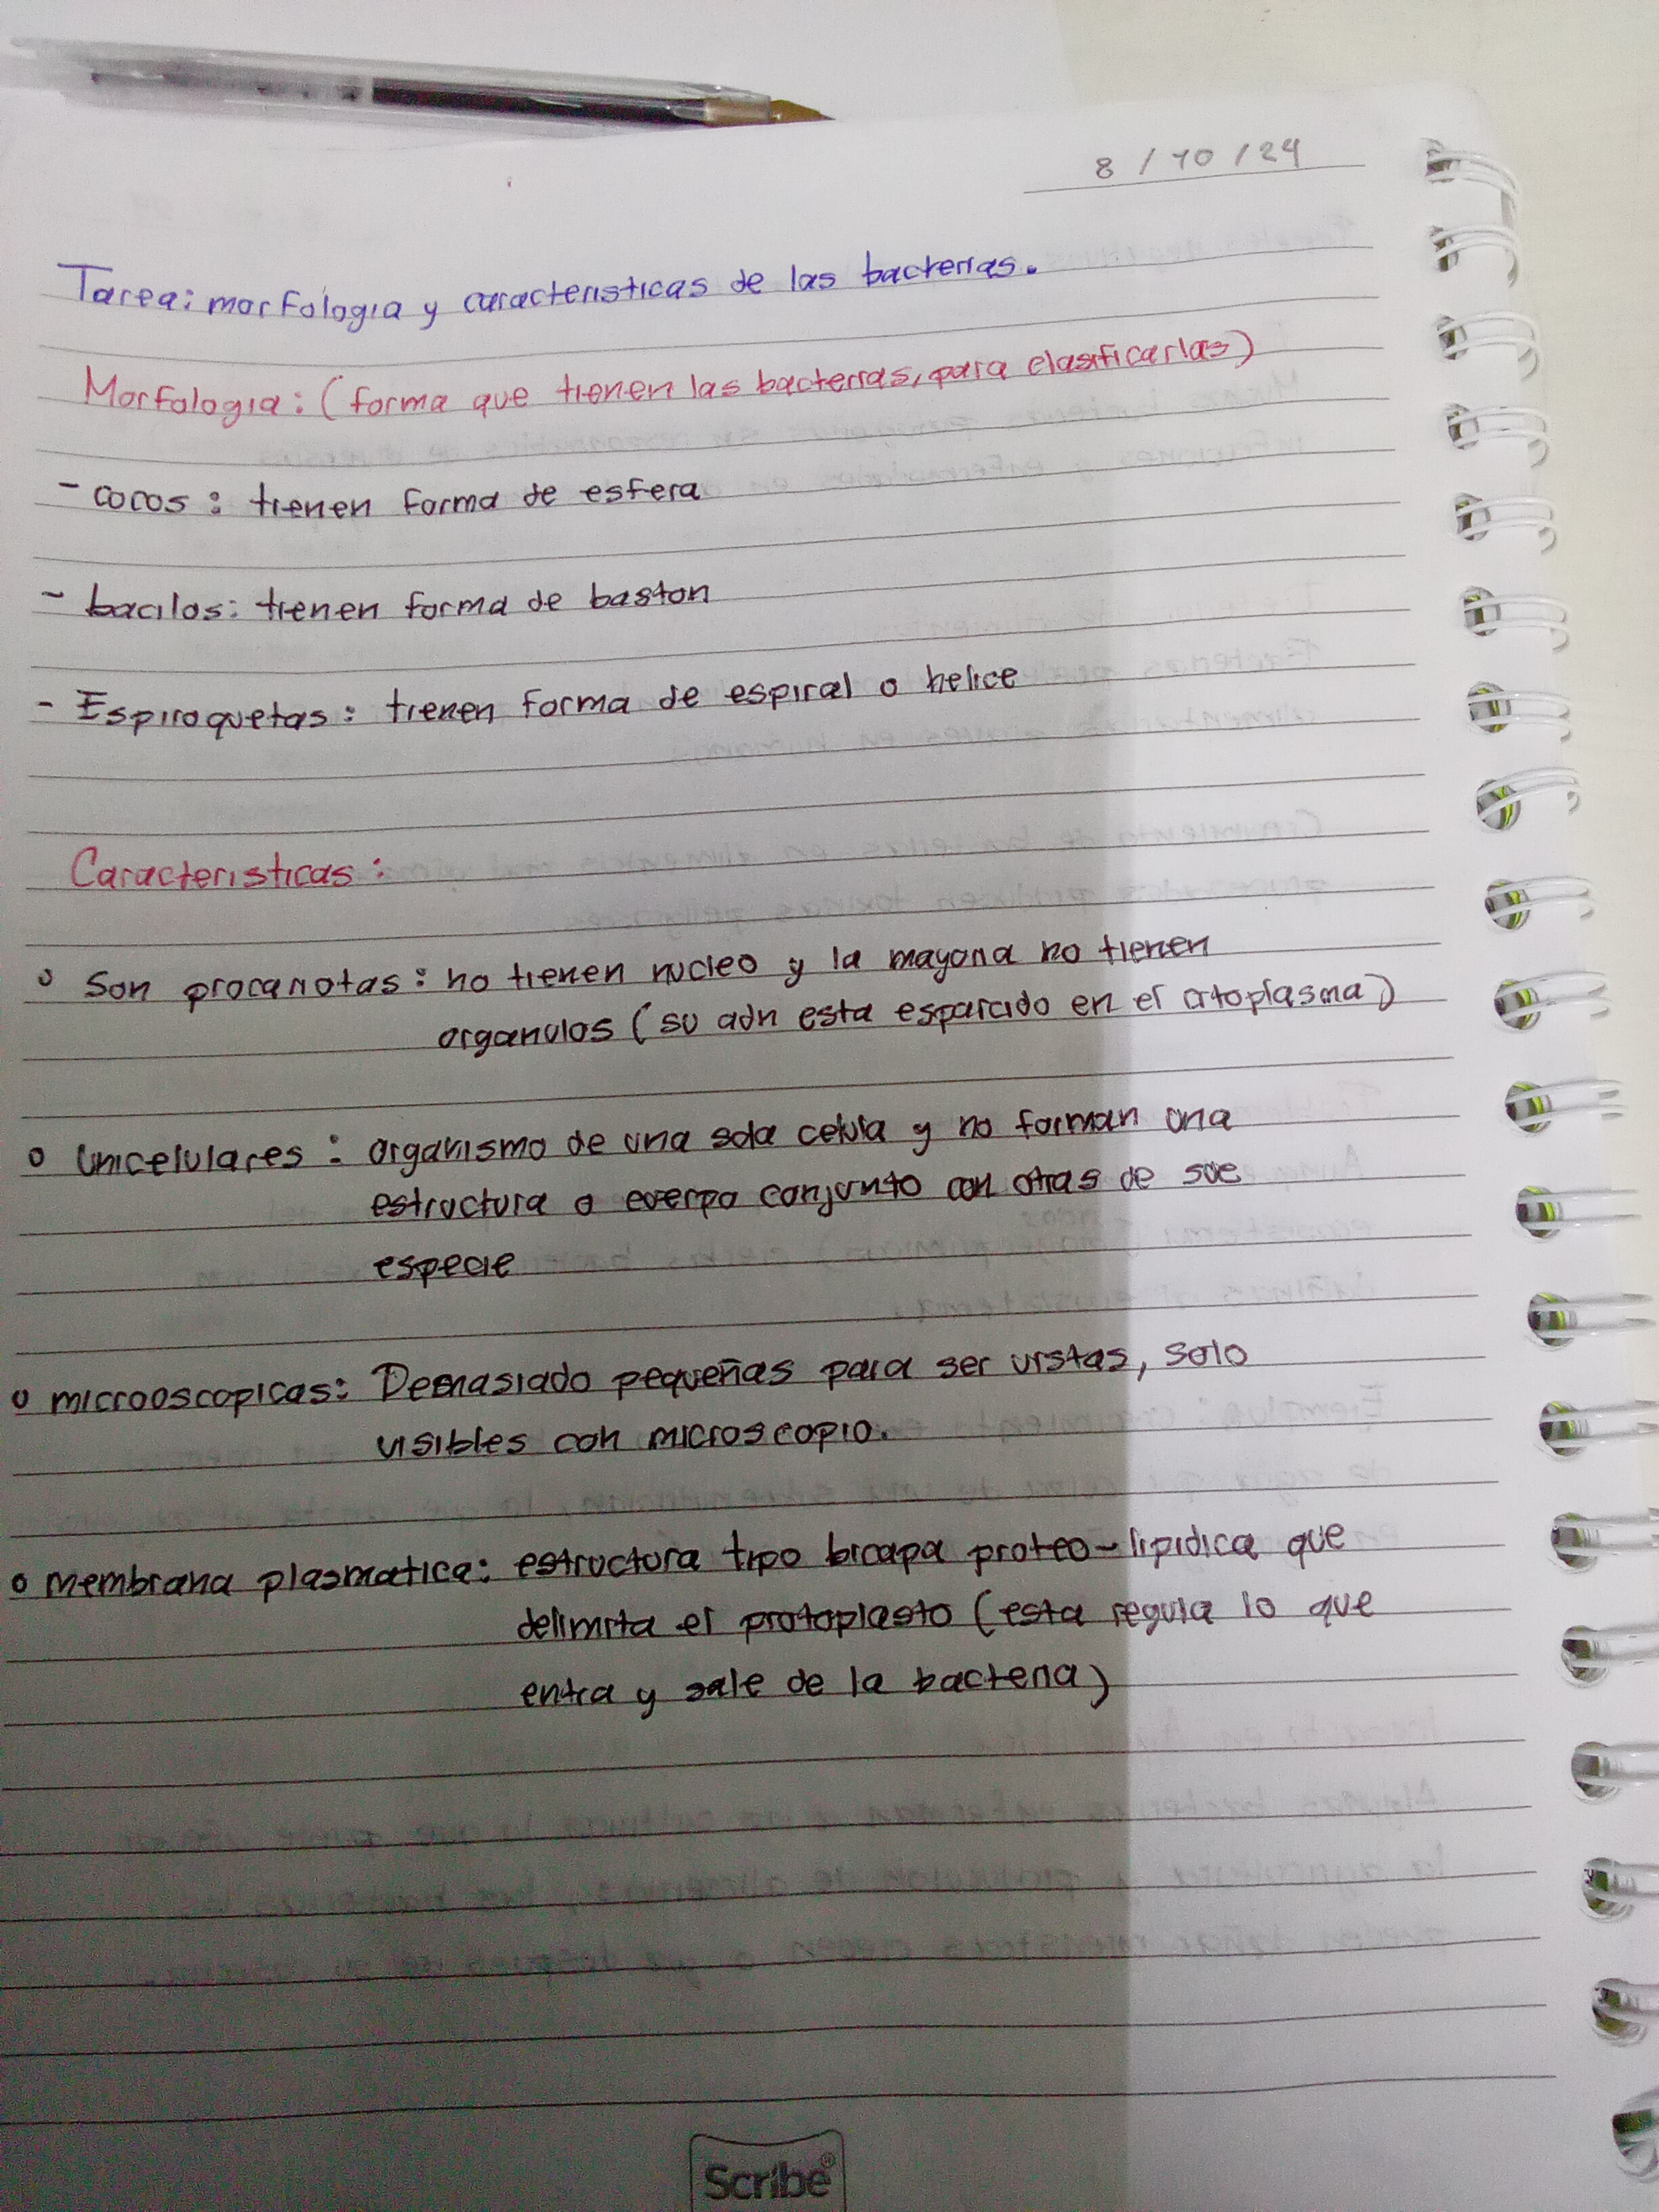 8 / 10 / 24
Tarea: morfologia y caracteristicas de las bacterias.
Morfologia: (forma que tienen las bacterias, para clasificarlas)
- cocos: tienen forma de esfera
- bacilos: tienen forma de baston
- Espiroquetas: tienen forma de espiral o helice
Caracteristicas:
o Son procariotas: no tienen nucleo y la mayoria no tienen
organulos (su adn esta esparcido en el citoplasma)
o Unicelulares: organismo de una sola celula y no forman una
estructura o cuerpo conjunto con otras de sue
especie
o microoscopicas: Demasiado pequeñas para ser vistas, solo
visibles con microscopio.
o membrana plasmatica: estructura tipo bicapa proteo-lipidica que
delimita el protoplasto (esta regula lo que
entra y sale de la bacteria)
Scribe®